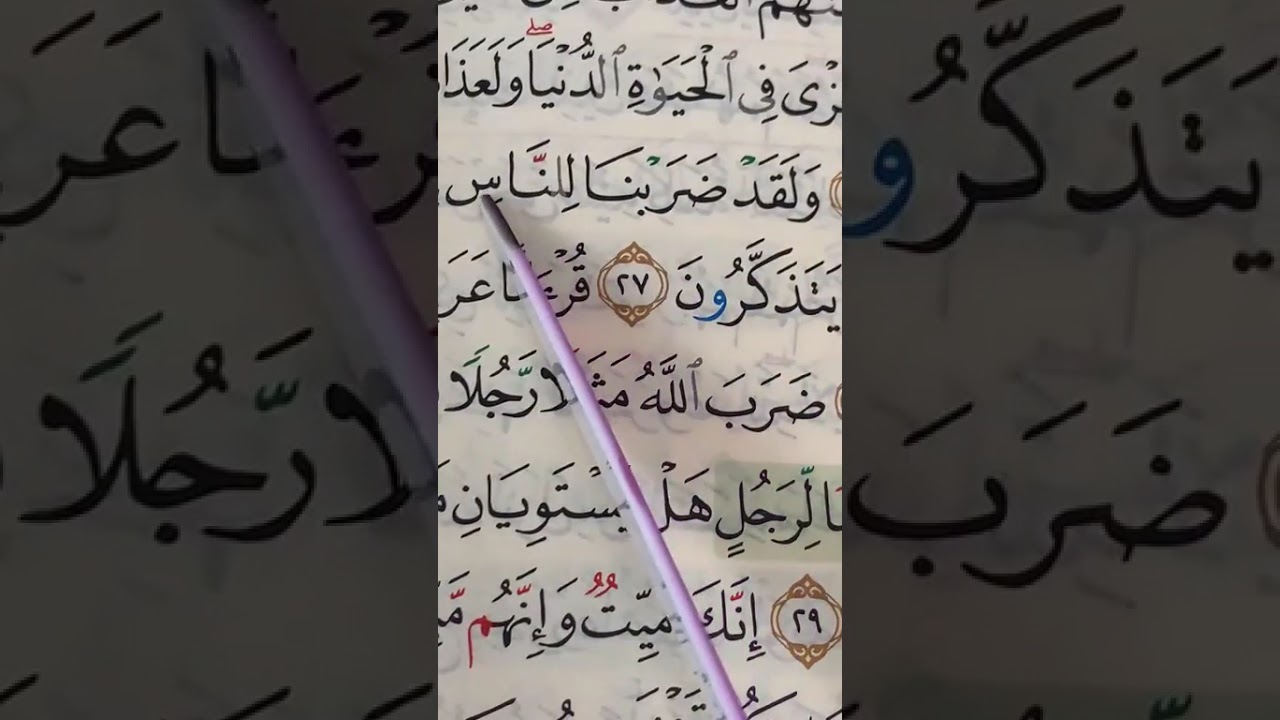 فِى ٱلْحَيَوٰةِ ٱلدُّنْيَا ۖ وَلَعَذَا
وَلَقَدْ ضَرَبْنَا لِلنَّاسِ
يَتَذَكَّرُونَ ٢٧ قُرْءَانًا عَرَ
ضَرَبَ ٱللَّهُ مَثَلًا رَّجُلًا
لِّرَجُلٍ هَلْ يَسْتَوِيَانِ
٢٩ إِنَّكَ مَيِّتٌ وَإِنَّهُم